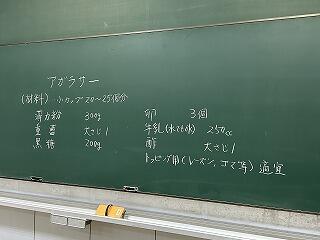 アガラサー
(材料) 小カップ20〜25個分
薄力粉 300g
重曹 大さじ1
黒糖 200g
卵 3個
牛乳(水でも可) 250cc
酢 大さじ1
トッピング用(レーズン、ゴマ等) 適宜